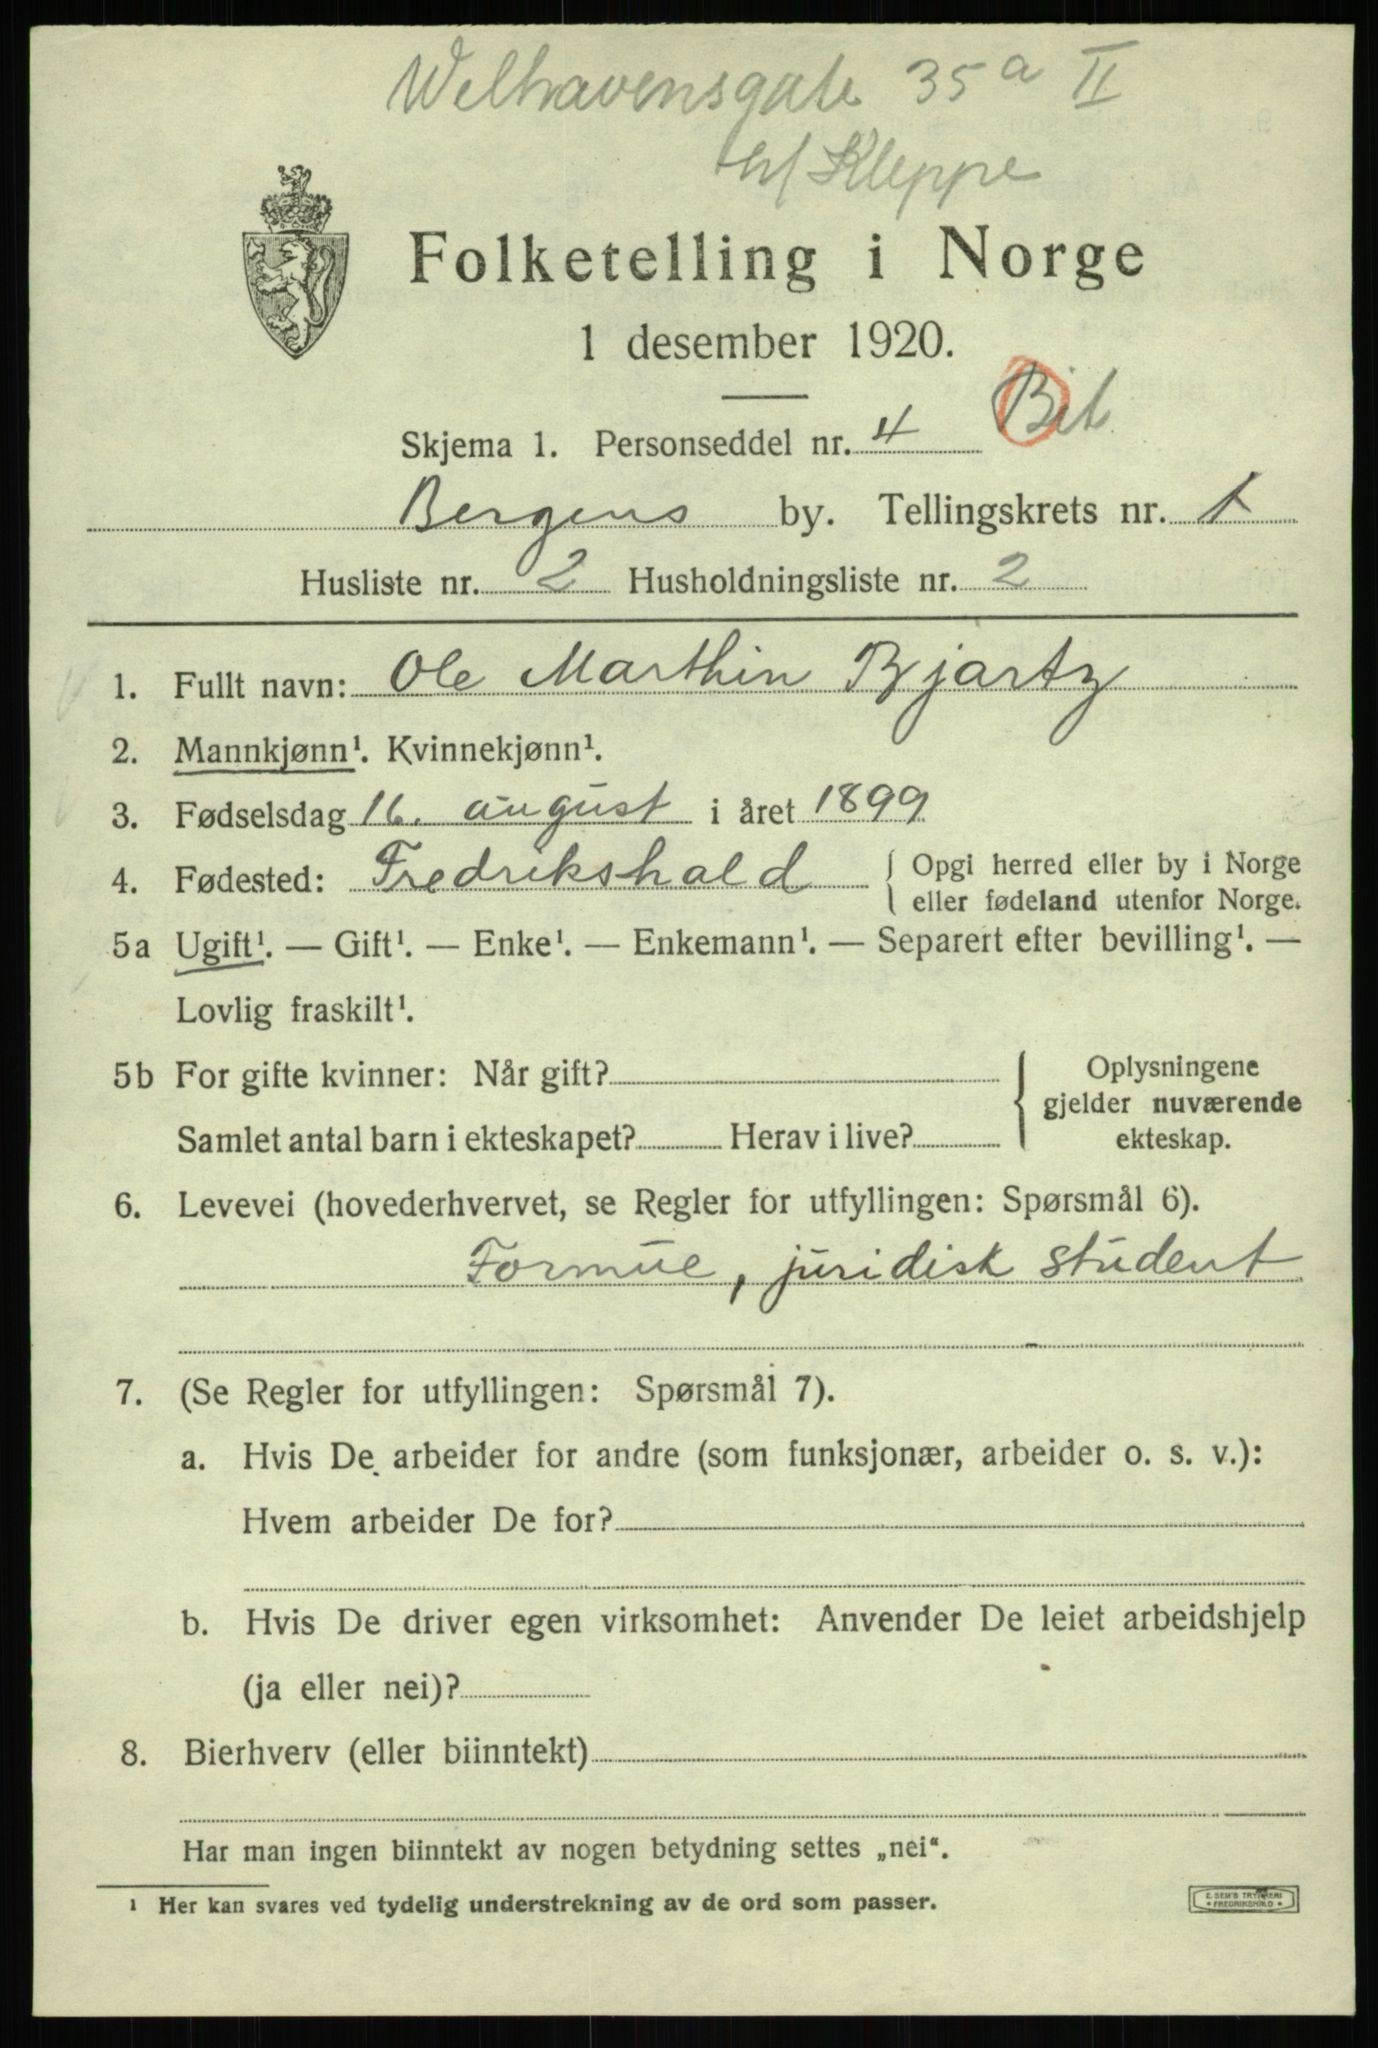 Welhavensgate 35a II
hf Kleppe
Folketelling i Norge
1 desember 1920.
Skjema 1. Personseddel nr. 4
Bergens by. Tellingskrets nr. 1
Husliste nr. 2 Husholdningsliste nr. 2
1. Fullt navn: Ole Marthin Bjartz
2. Mannkjønn¹. Kvinnekjønn¹.
3. Fødselsdag 16. august i året 1899
4. Fødested: Fredrikshald { Opgi herred eller by i Norge
eller fødeland utenfor Norge.
5a Ugift¹. — Gift¹. — Enke¹. — Enkemann¹. — Separert efter bevilling¹. —
Lovlig fraskilt¹.
5b For gifte kvinner: Når gift?
Samlet antal barn i ekteskapet? Herav i live?
Oplysningene
gjelder nuværende
ekteskap.
6. Levevei (hovederhvervet, se Regler for utfyllingen: Spørsmål 6).
Formue, juridisk student
7. (Se Regler for utfyllingen: Spørsmål 7).
a. Hvis De arbeider for andre (som funksjonær, arbeider o. s. v.):
Hvem arbeider De for?
b. Hvis De driver egen virksomhet: Anvender De leiet arbeidshjelp
(ja eller nei)?
8. Bierhverv (eller biinntekt)
Har man ingen biinntekt av nogen betydning settes „nei“.
¹ Her kan svares ved tydelig understrekning av de ord som passer.
E. SEM'S TRYKKERI
FREDRIKSHALD